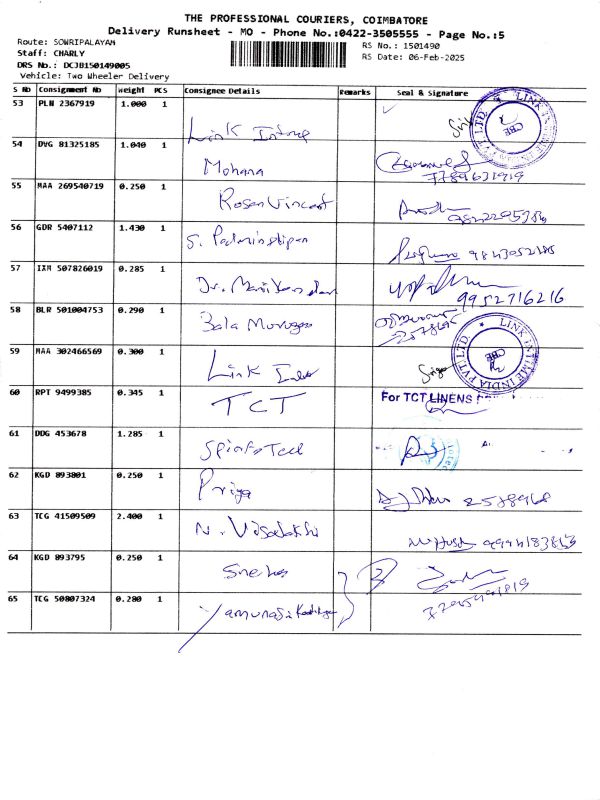 THE PROFESSIONAL COURIERS, COIMBATORE
Delivery Runsheet - MO - Phone No.:0422-3505555 - Page No.:5
Route: SOWRIPALAYAM
Staff: CHARLY
DRS No.: DCJB150149005
Vehicle: Two Wheeler Delivery
RS No.: 1501490
RS Date: 06-Feb-2025
S No Consignment No Weight PCS Consignee Details Remarks Seal & Signature
53 PLH 2367919 1.000 1 Link Intime
LINK INTIME INDIA PVT LTD CBE
54 DVG 81325185 1.040 1 Mohana
7789631919
55 MAA 269540719 0.250 1 Rosan Vincent
56 GDR 5407112 1.430 1 S. Padmin
9843052185
57 IXM 507826019 0.285 1 Dr. Manikandan
9952716216
58 BLR 501004753 0.290 1 Bala Murugan
59 MAA 302466569 0.300 1 Link
LINK INTIME INDIA PVT LTD CBE
60 RPT 9499385 0.345 1 TCT
For TCT LINENS
61 DDG 453678 1.285 1
62 KGD 893801 0.250 1 Priya
2578968
63 TCG 41509509 2.400 1 N. Visalakshi
64 KGD 893795 0.250 1 Sneha
65 TCG 50807324 0.280 1